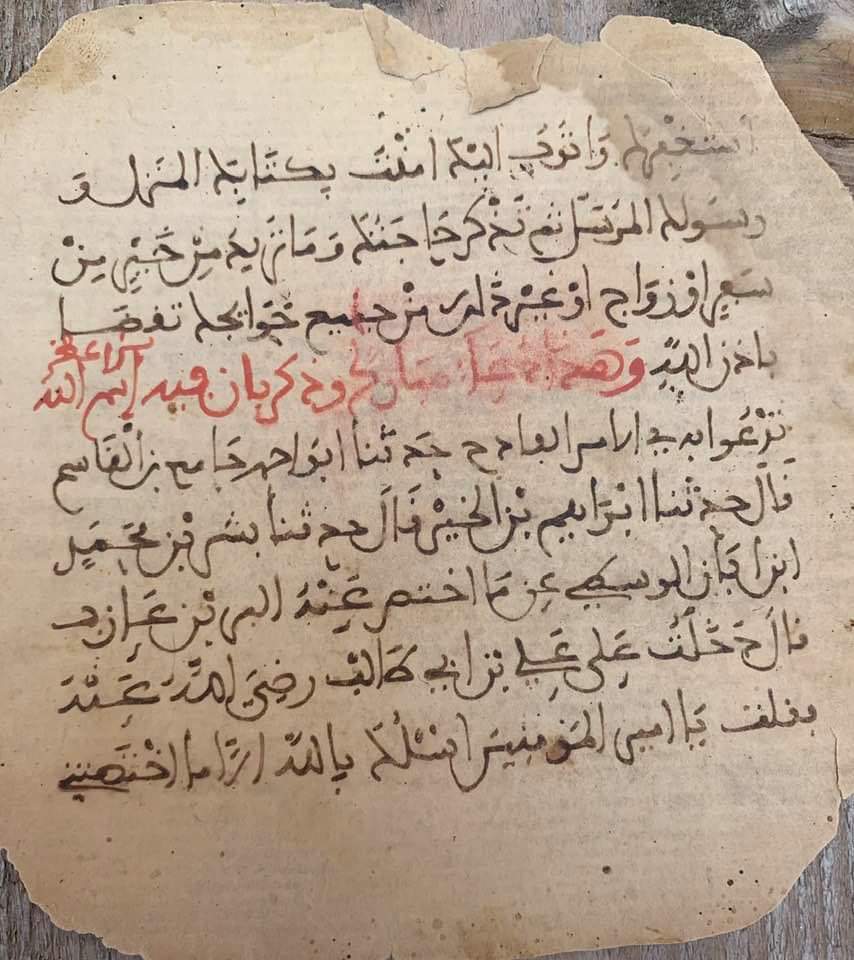 استغفرك وَاتوبُ اليْك امنْتَ بِكتَابِك المنزل وَ
رسَولك المرْسَل ثم تَذْكر حَاجَتُك وَمَا تريد مِنْ خَيْرٍ مِنْ
سَعي اوْ زوَاج اوْ غيْرهَ لك مِنْ جميع حَوَايجك تقضا
باذن اللهِ وَهَذ دعَاء مبارك وذكر بان فيه اسم الله
تدْعُوا به في الامر حَدثنا ابوا احمد جَامع بن الْقاسم
قالَ حدثنا ابْرَاهيم بْن الخيْر قَالَ حدثنا بشر بْن محَميد
ابن ابَان الوسطي عن مَا اختصر عَنِهُ البر بْن عَازب
قالَ دَخَلْتُ عَلى عَلي بن ابي طالبْ رضِيَ اللهَ عَنْهَ
فقلت يَا امير المَومنِين اسْئلُك بِاللهِ الا ما اخْتصَصتني